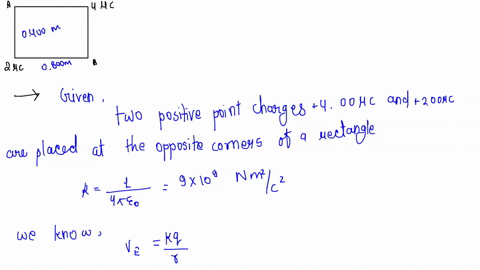 A 4 μC
0.400 m
2 μC 0.800m B
→ Given,
two positive point charges +4.00μC and +2.00μC
are placed at the opposite corners of a rectangle
K = 1/4πε₀ = 9×10⁹ Nm²/C²
we know,
V_E = Kq/r